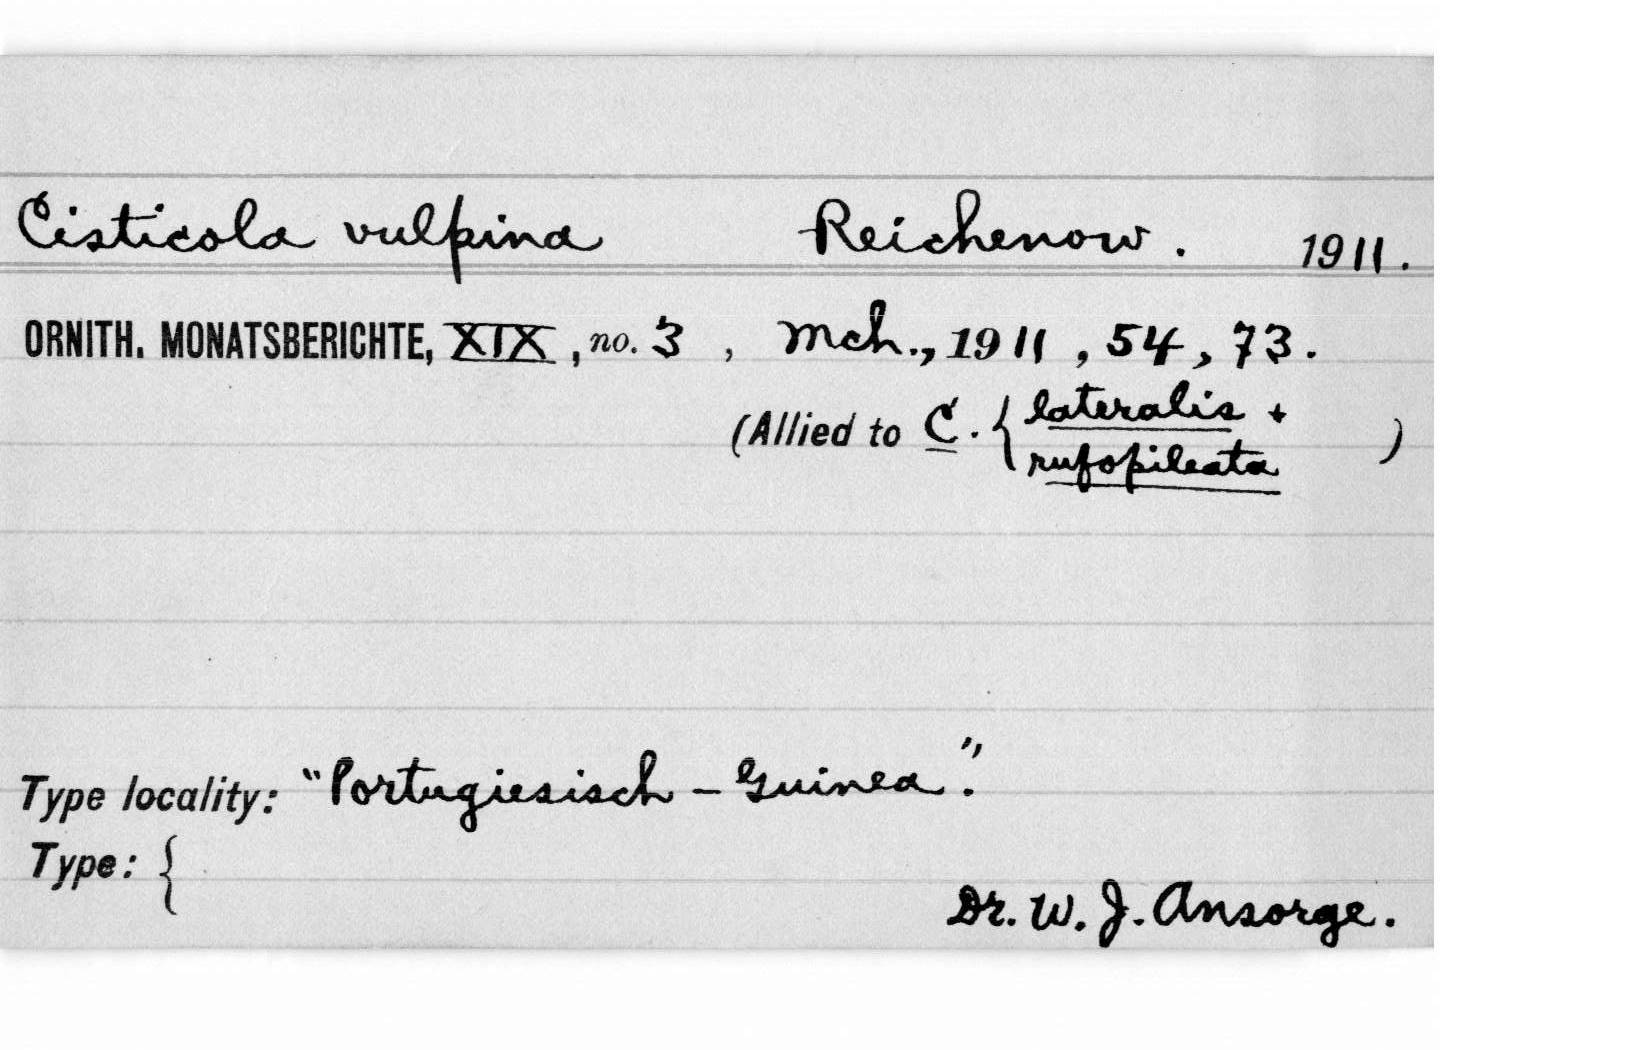 Cisticola vulpina Reichenow. 1911.
ORNITH. MONATSBERICHTE, XIX, no. 3, Mch., 1911, 54, 73.
(Allied to C. { lateralis +
rufopileata )
Type locality: "Portugiesisch-Guinea."
Type: {
Dr. W. J. Ansorge.